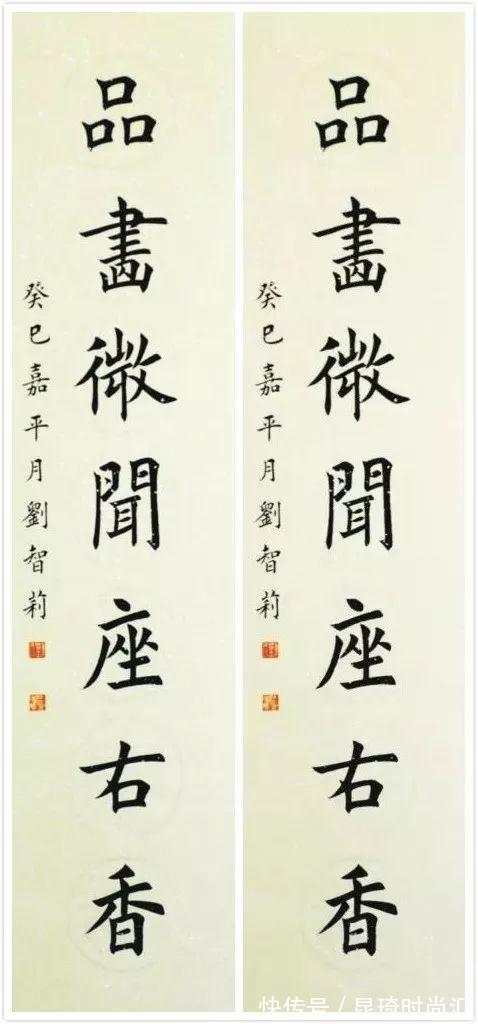 品畵微聞座右香
癸巳嘉平月劉智莉
品畵微聞座右香
癸巳嘉平月劉智莉
快传号 / 昆琦时尚汇